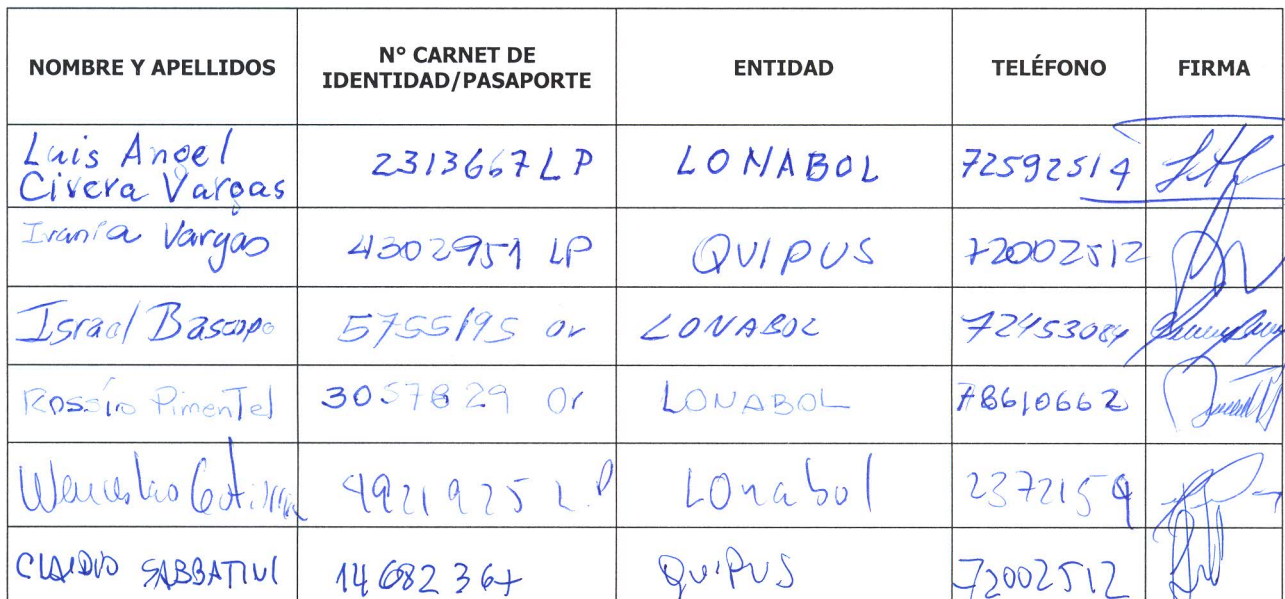 NOMBRE Y APELLIDOS N° CARNET DE IDENTIDAD/PASAPORTE ENTIDAD TELÉFONO FIRMA
Luis Angel
Civera Vargas 2313667 LP LONABOL 72592514
Ivania Vargas 4302951 LP QUIPUS 72002512
Israel Bascope 5755195 or LONABOL 72453084
Rossío Pimentel 3057829 Or LONABOL 78610662
Wenceslao 4921925 LP LOnabol 2372154
CLAUDIO SABBATINI 14682367 QUIPUS 72002512